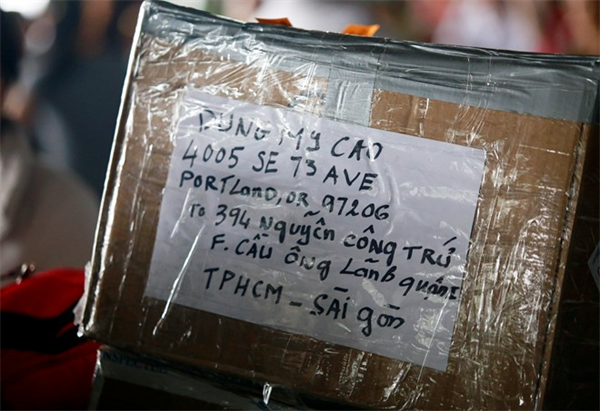 DUNG MY CAO
4005 SE 73 AVE
PORTLAND, OR 97206
To 394 NGUYỄN CÔNG TRỨ
F. CẦU ÔNG LÃNH QUẬN I
TPHCM - SÀI GÒN